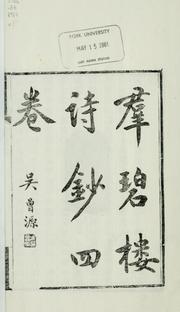 YORK UNIVERSITY
MAY 15 2001
羣碧樓
詩鈔四
卷
吳曾源